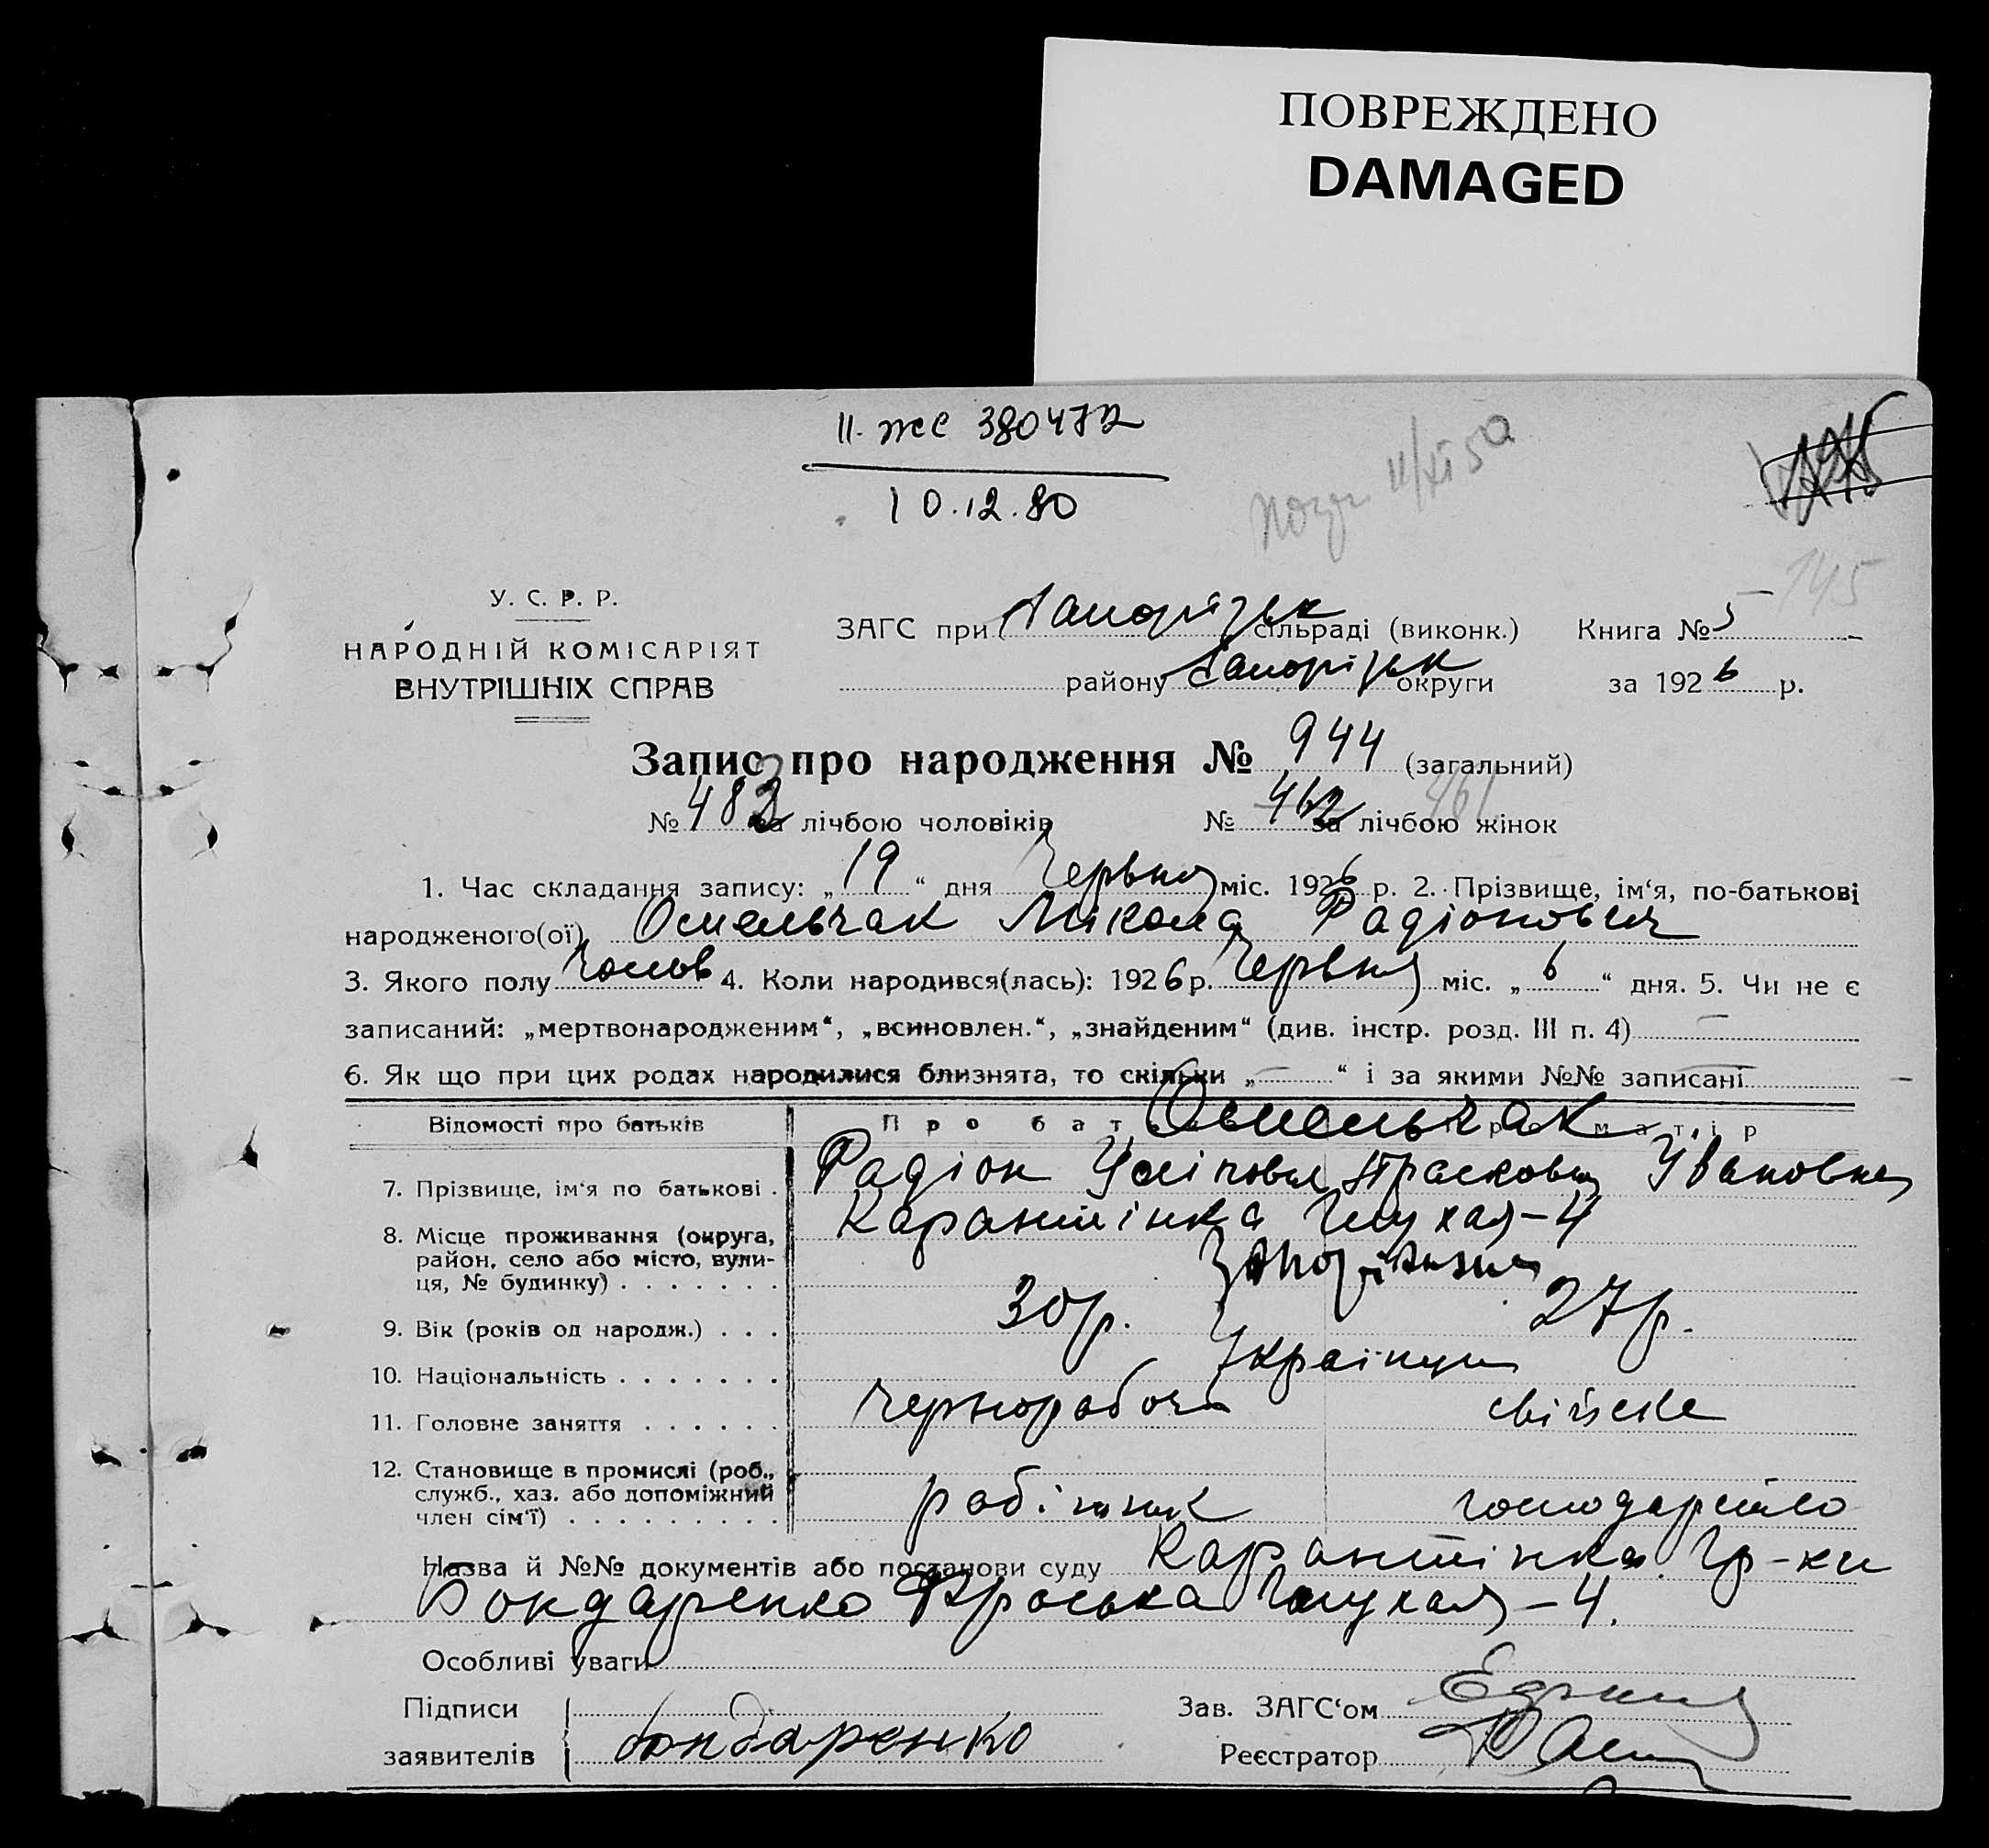 ПОВРЕЖДЕНО
DAMAGED
II. ЖС 380472
10.12.80
145
У. С. Р. Р.
НАРОДНІЙ КОМІСАРІЯТ
ВНУТРІШНІХ СПРАВ
ЗАГС при Запорізьк сільраді (виконк.) Книга № 5
району Запорізьк округи за 1926 р.
Запис про народження № 944 (загальний)
№ 483 за лічбою чоловіків № 462 за лічбою жінок 461
1. Час складання запису: „19“ дня Червня міс. 1926 р. 2. Прізвище, ім‘я, по-батькові
народженого(ої) Омельчак Мікола Радіонович
3. Якого полу Чолов 4. Коли народився(лась): 1926 р. Червня міс. „6“ дня. 5. Чи не є
записаний: „мертвонародженим“, „всиновлен.“, „знайденим“ (див. інстр. розд. III п. 4) —
6. Як що при цих родах народилися близнята, то скільки „—“ і за якими №№ записані —
Відомості про батьків Про батька Про матір
Омельчак
7. Прізвище, ім‘я по батькові Радіон Йосіпович Прасковья Івановна
8. Місце проживання (округа, район, село або місто, вулиця, № будинку) Карантінка Глухая-4
Запоріжжя
9. Вік (років од народж.) 30 р. 27 р.
10. Національність Українці
11. Головне заняття Чернорабочий свійське
12. Становище в промислі (роб., служб., хаз. або допоміжний член сім‘ї) робітник господарство
Назва й №№ документів або постанови суду Карантінка Гр-ки
Бондаренко Фроська Глухая-4.
Особливі уваги
Підписи заявителів Бондаренко
Зав. ЗАГС‘ом
Реєстратор